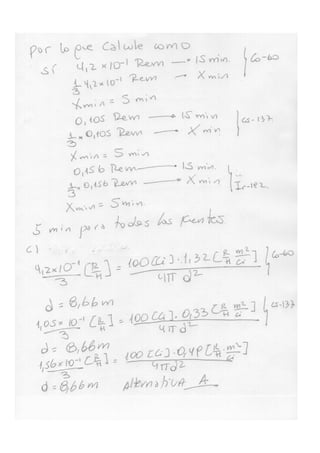 Por lo que calcule como
si 4,2 x 10⁻¹ Rem → 15 min } Co-60
1/3 4,2 x 10⁻¹ Rem → X min
X min = 5 min
0,105 Rem → 15 min } Cs-137
1/3 x 0,105 Rem → X min
X min = 5 min
0,156 Rem → 15 min } Ir-192
1/3 . 0,156 Rem → X min
X min = 5 min.
5 min para todas las fuentes
c)
4,2x10⁻¹/3 [R/H] = 100 [Ci] . 1,32 [R/H m²/Ci] / 4π d² } Co-60
d = 8,66 m
1,05 x 10⁻¹/3 [R/H] = 100 [Ci] . 0,33 [R/H m²/Ci] / 4π d² } Cs-137
d = 8,66 m
1,56 x 10⁻¹/3 [R/H] = 100 [Ci] . 0,49 [R/H m²/Ci] / 4π d²
d = 8,66 m Alternativa A